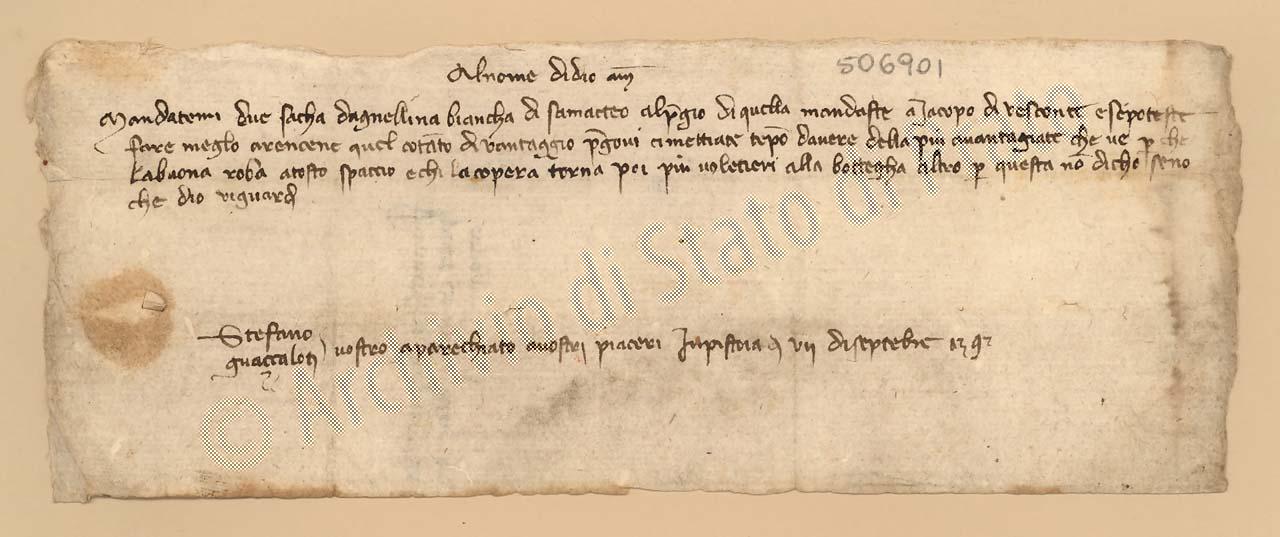 Al nome di dio am̅
506901
Mandatemi due saccha dagnellina biancha di samatteo alp̱gio di quella mandaste a Jacopo di vesconte e sepoteste
fare meglo arencene quel cota̅to di vantaggio p̱govi ci mettiate tepo̅ davere della più avantagiate che ve p̱ che
la buona roba a tosto spaccio e chi la copera torna poi più voletieri alla bottegha altro p̱ questa no̅ dicho seno
che dio vi guardi
Stefano
guaççaloti vostro aparechiato a vostri piaceri In pistoia a vii di septebre
© Archivio di Stato di